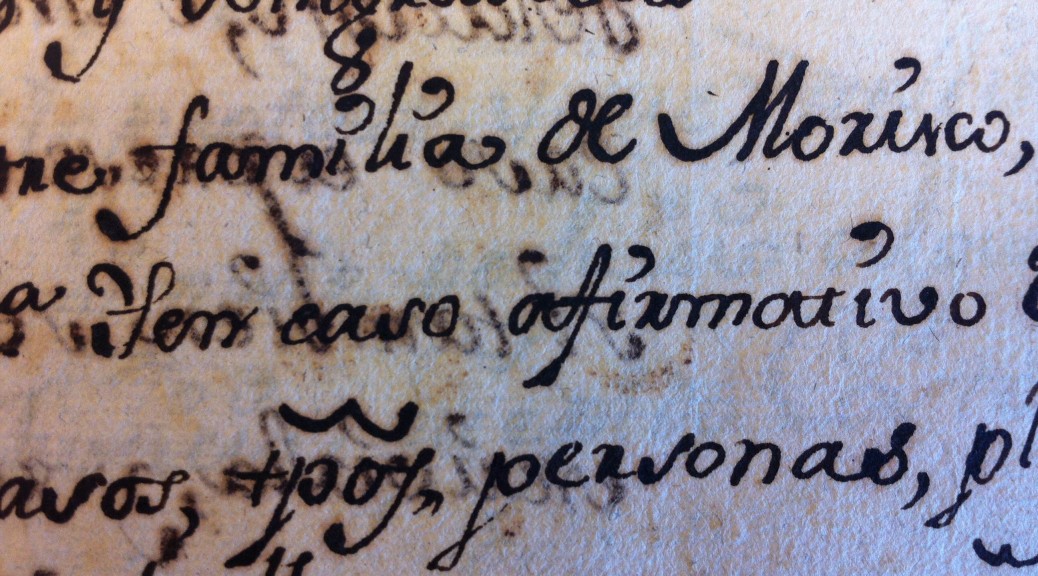 familia, de Morisco,
a Y en caso afirmativo
asos, tpos, personas,